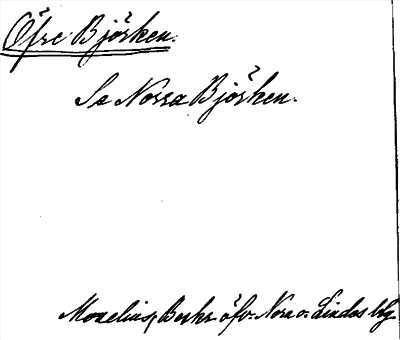 Öfre Björken.
Se Norra Björken.
Morelius, Beskr öfv. Nora o. Lindes blg.